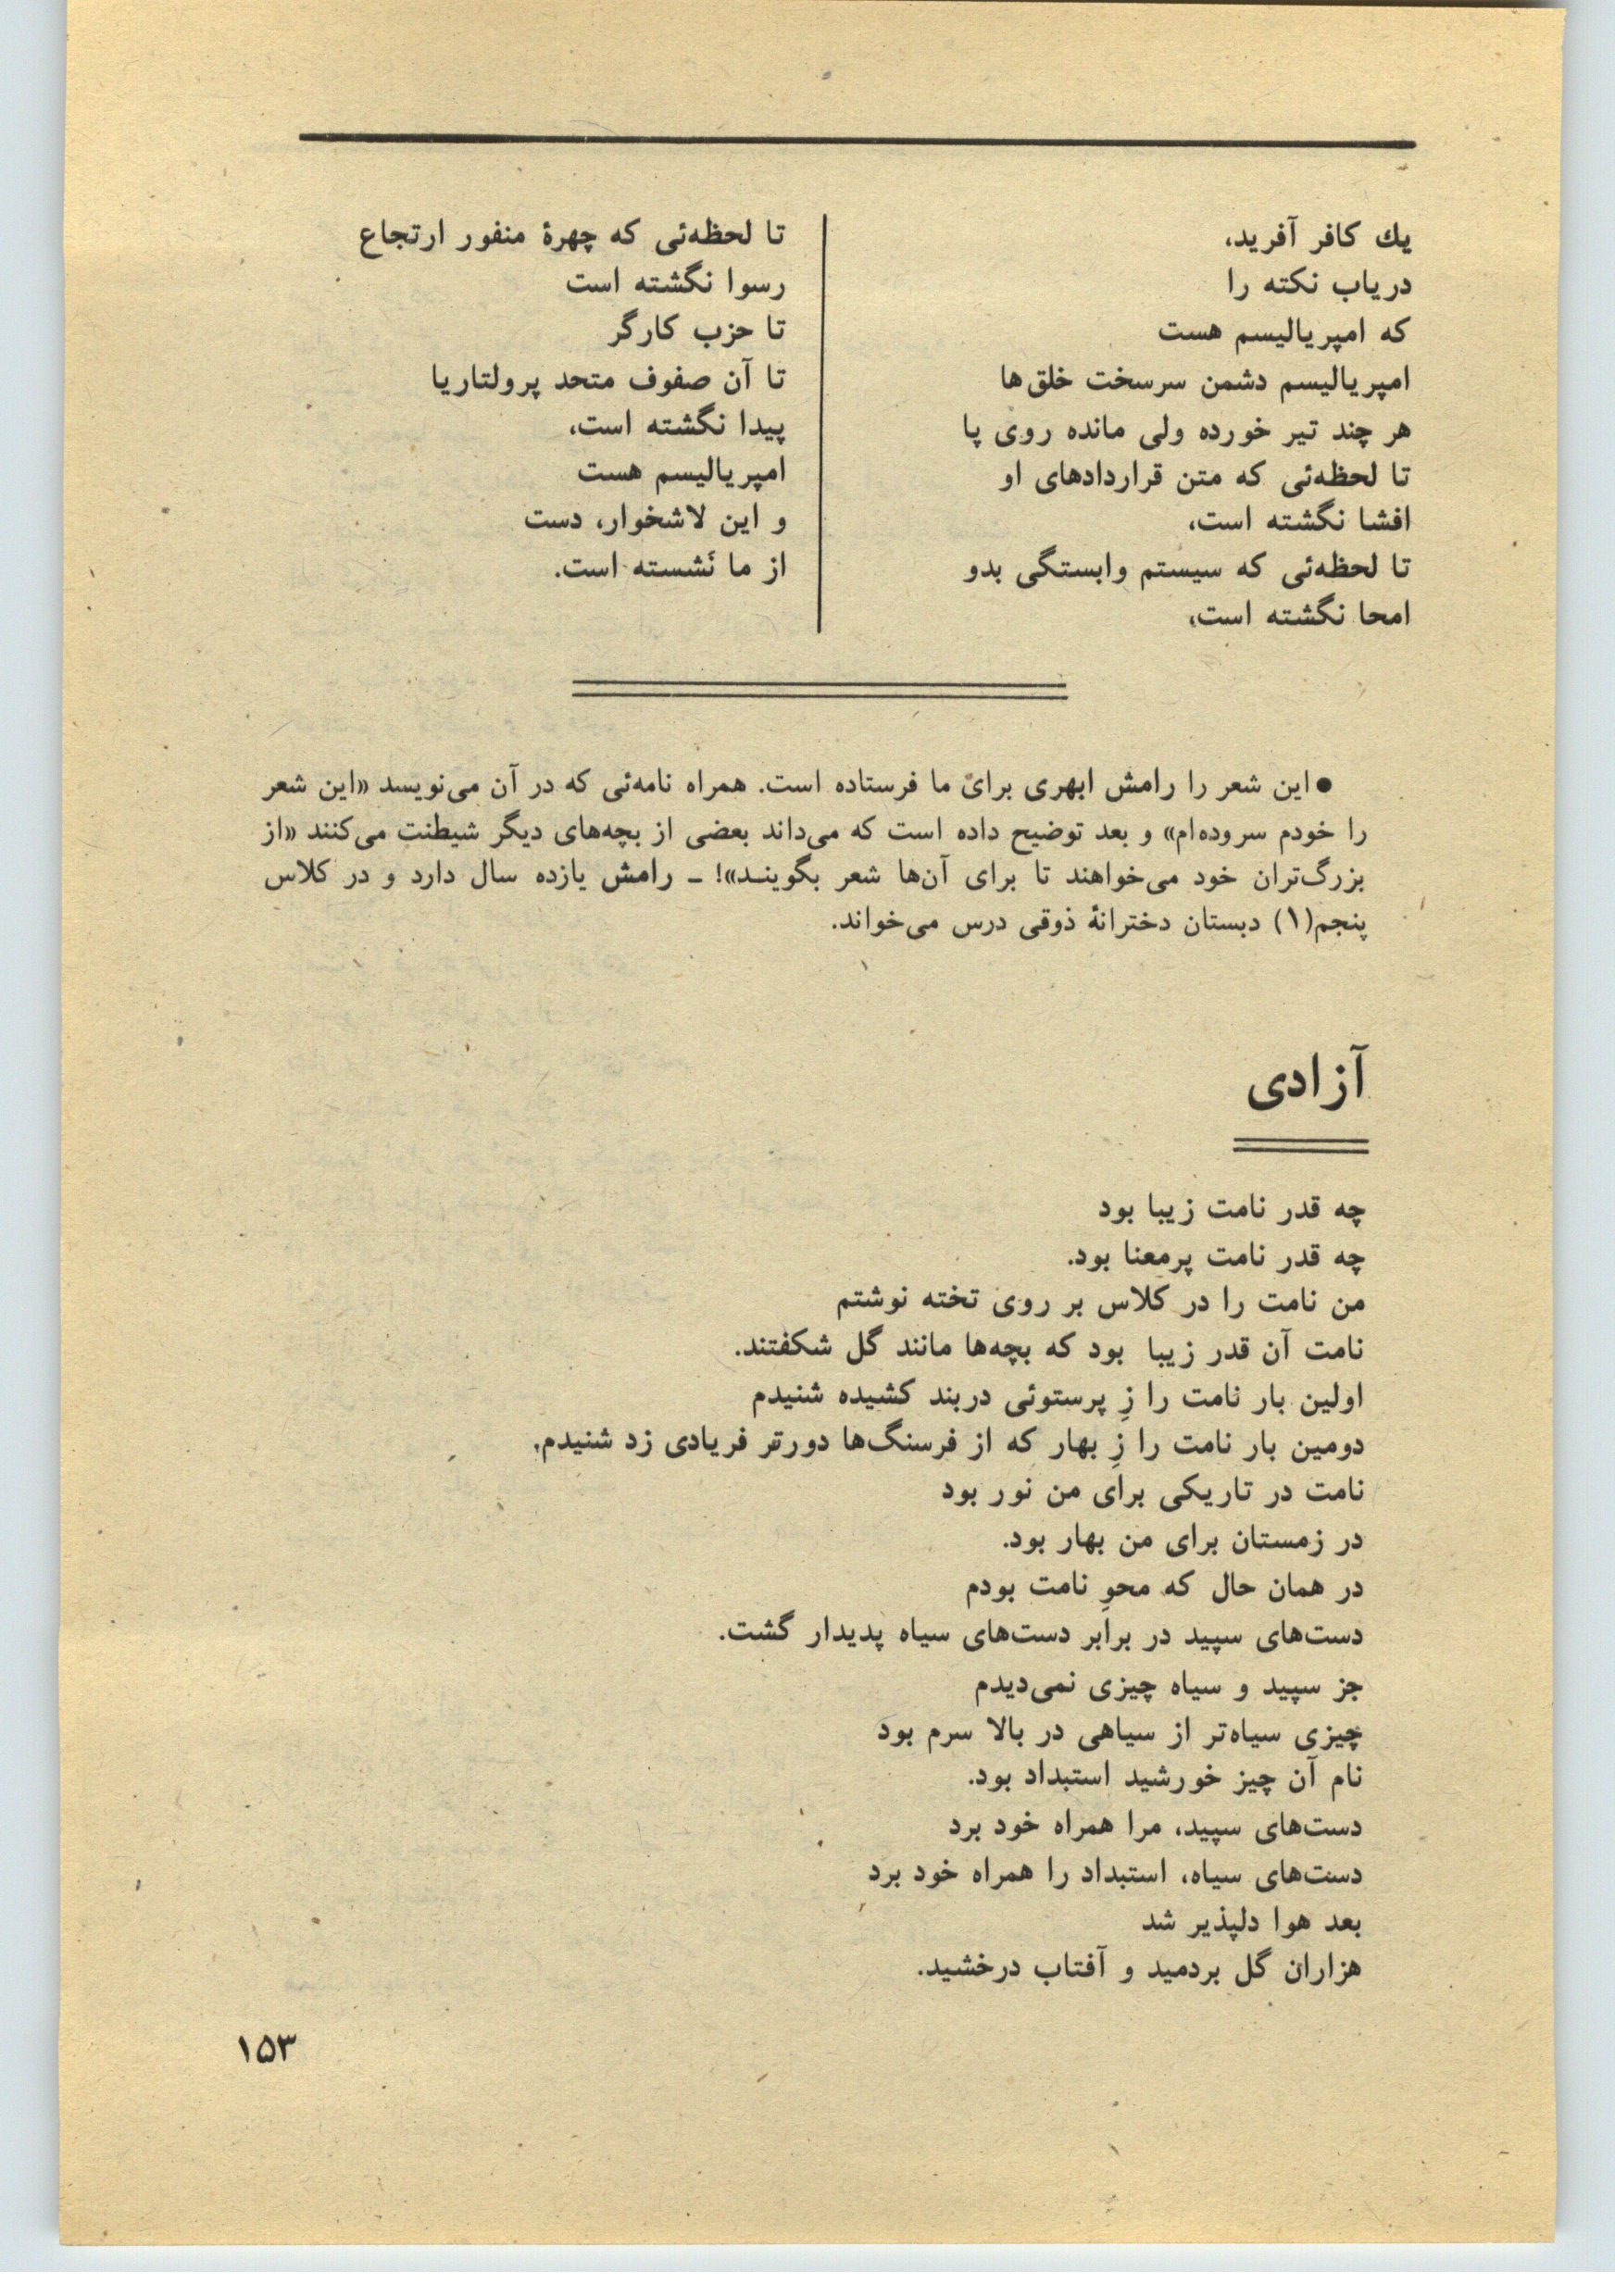 یك کافر آفرید،
دریاب نکته را
که امپریالیسم هست
امپریالیسم دشمن سرسخت خلق‌ها
هر چند تیر خورده ولی مانده روی پا
تا لحظه‌ئی که متن قراردادهای او
افشا نگشته است،
تا لحظه‌ئی که سیستم وابستگی بدو
امحا نگشته است،
تا لحظه‌ئی که چهرهٔ منفور ارتجاع
رسوا نگشته است
تا حزب کارگر
تا آن صفوف متحد پرولتاریا
پیدا نگشته است،
امپریالیسم هست
و این لاشخوار، دست
از ما نَشسته است.
● این شعر را رامش ابهری برای ما فرستاده است. همراه نامه‌ئی که در آن می‌نویسد «این شعر
را خودم سروده‌ام» و بعد توضیح داده است که می‌داند بعضی از بچه‌های دیگر شیطنت می‌کنند «از
بزرگ‌تران خود می‌خواهند تا برای آن‌ها شعر بگوینـد»! ـ رامش یازده سال دارد و در کلاس
پنجم(۱) دبستان دخترانهٔ ذوقی درس می‌خواند.
آزادی
چه قدر نامت زیبا بود
چه قدر نامت پرمعنا بود.
من نامت را در کلاس بر روی تخته نوشتم
نامت آن قدر زیبا بود که بچه‌ها مانند گل شکفتند.
اولین بار نامت را زِ پرستوئی دربند کشیده شنیدم
دومین بار نامت را زِ بهار که از فرسنگ‌ها دورتر فریادی زد شنیدم.
نامت در تاریکی برای من نور بود
در زمستان برای من بهار بود.
در همان حال که محوِ نامت بودم
دست‌های سپید در برابر دست‌های سیاه پدیدار گشت.
جز سپید و سیاه چیزی نمی‌دیدم
چیزی سیاه‌تر از سیاهی در بالا سرم بود
نام آن چیز خورشید استبداد بود.
دست‌های سپید، مرا همراه خود برد
دست‌های سیاه، استبداد را همراه خود برد
بعد هوا دلپذیر شد
هزاران گل بردمید و آفتاب درخشید.
۱۵۳